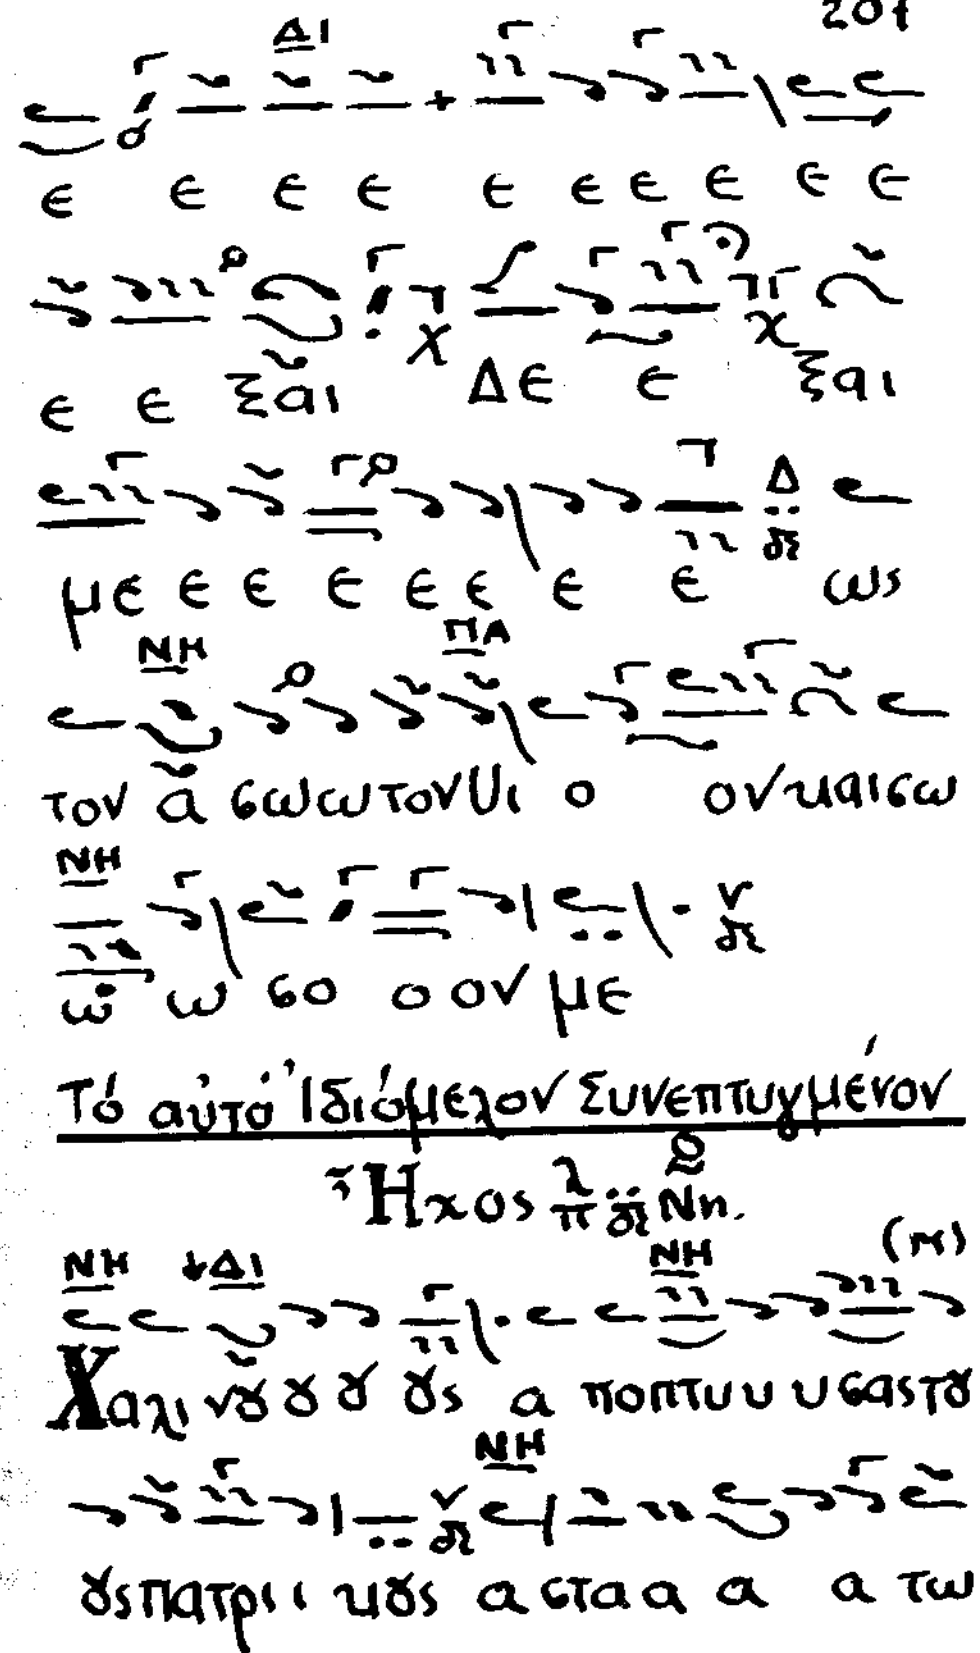 207
ΔΙ
ε ε ε ε ε ε ε ε ε ε
ε ε ξαι Δε ε ξαι
Δ
με ε ε ε ε ε ε ε ως
ΝΗ ΠΑ
τον α σωωτονυι ο ονκαισω
ΝΗ
ω ω σο ο ον με
Τό αὐτό Ἰδιόμελον Συνεπτυγμένον
Ἦχος λ π Νη.
ΝΗ ΔΙ ΝΗ (Μ)
Χαλινȣ ȣ ȣ ȣς α ποπτυυ υσαςτȣ
ΝΗ
ȣςπατρι ι κȣς α σταα α α τω